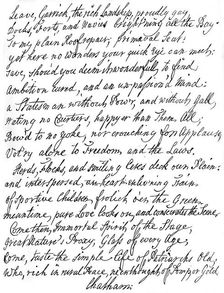 Leave, Garrick, the rich Landskip, proudly gay,
Docks, Forts, and Navies bright'ning all the Bay:
To my plain Roof repair, primæval Seat!
yet here no Wonders your quick Eye can meet;
Save, should you deem it wonderfull, to find
Ambition cured, and an unpassion'd Mind:
a Statesman without Pow'r, and without Gall,
Hating no Courtiers, happier than Them All;
Bow'd to no Yoke, nor crouching for applause;
Vot'ry alone to Freedom, and the Laws.
Herds, Flocks, and smiling Ceres deck our Plain:
and interspersed, an heart-enlivening Train,
of Sportive Children, frolick o'er the Green;
meantime, pure Love looks on, and consecrates the Scene.
Come then, Immortal Spirit of the Stage,
Great Nature's Proxy, Glass of every Age,
Come, taste the Simple Life of Patriarchs Old,
Who, rich in rural Peace, ne'er thought of Pomp or Gold.
Chatham